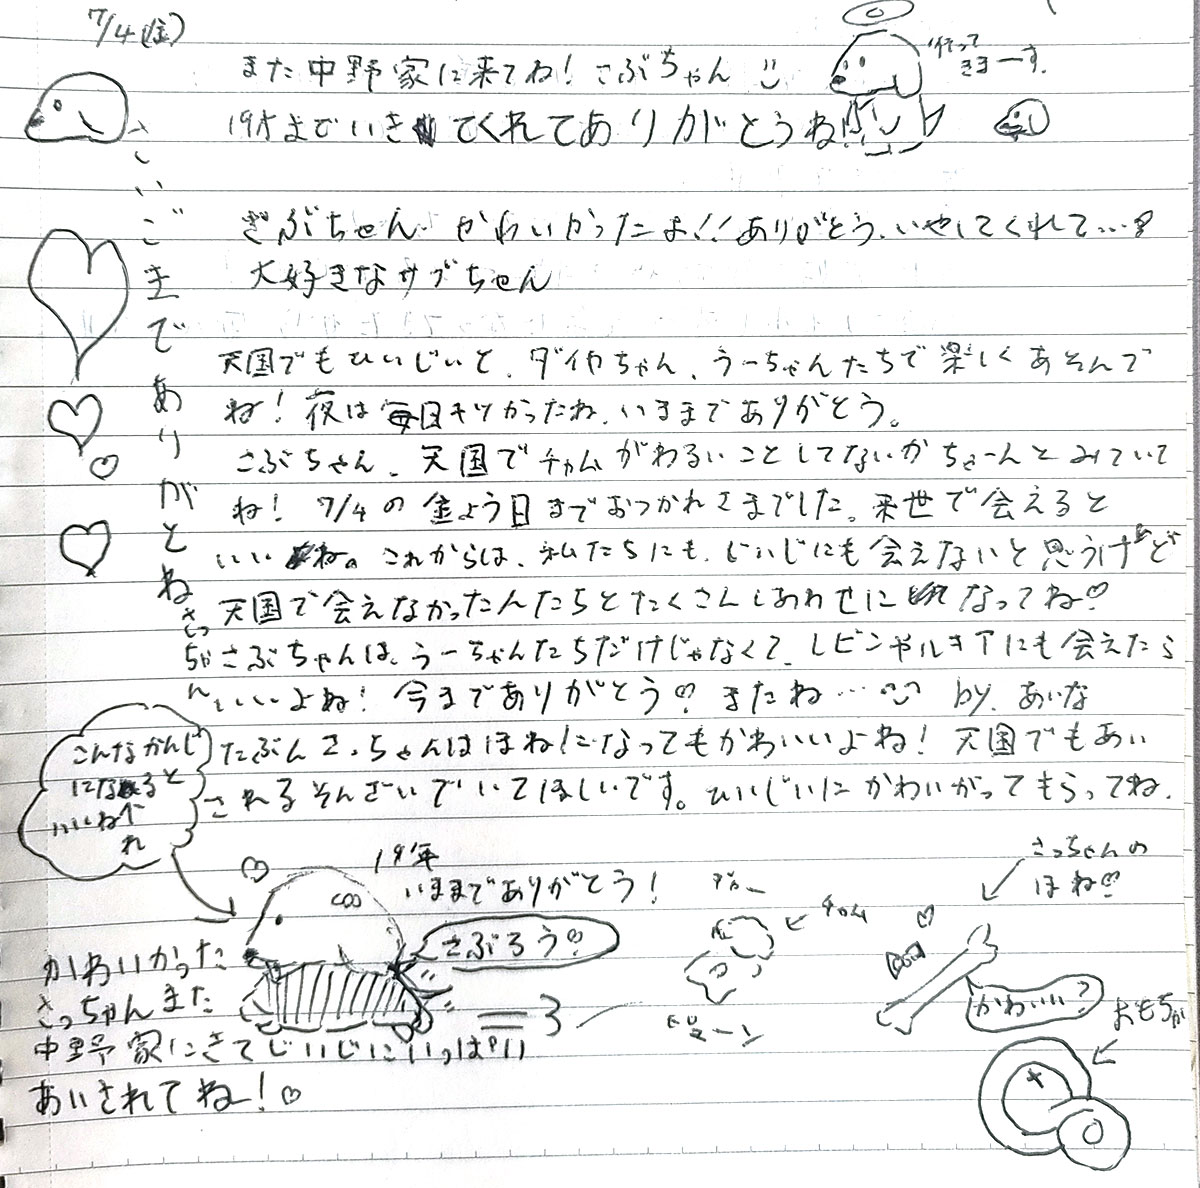 7/4(金)
また中野家に来てね！さぶちゃん
行って
きまーす。
19才までいきてくれてありがとうね!
さいごまでありがとね
さっちゃん
さぶちゃん かわいかったよ!!ありがとう、いやしてくれて…!
大好きなサブちゃん
天国でもひいじいと、ダイカちゃん、うーちゃんたちで楽しくあそんで
ね！夜は毎日キツかったね、いままでありがとう。
さぶちゃん、天国でチャムがわるいことしてないかちゃーんとみていて
ね！7/4の金よう日までおつかれさまでした。来世で会えると
いいね。これからは、私たちにも、じいじにも会えないと思うけど
天国で会えなかったんたちとたくさんしあわせになってね♡
さぶちゃんは、うーちゃんたちだけじゃなくて、レビンやルキアにも会えたら
いいよね！今までありがとう♡またね… by. あいな
たぶんさっちゃんはほねになってもかわいいよね！天国でもあい
されるそんざいでいてほしいです。ひいじいにかわいがってもらってね.
こんなかんじ
になると
いいね
19年
いままでありがとう！
さぶろう♡
かわいかった
さっちゃんまた
中野家にきてじいじにいっぱい
あいされてね！♡
チャム
さっちゃんの
ほね♡
かわいい?
おもちゃ